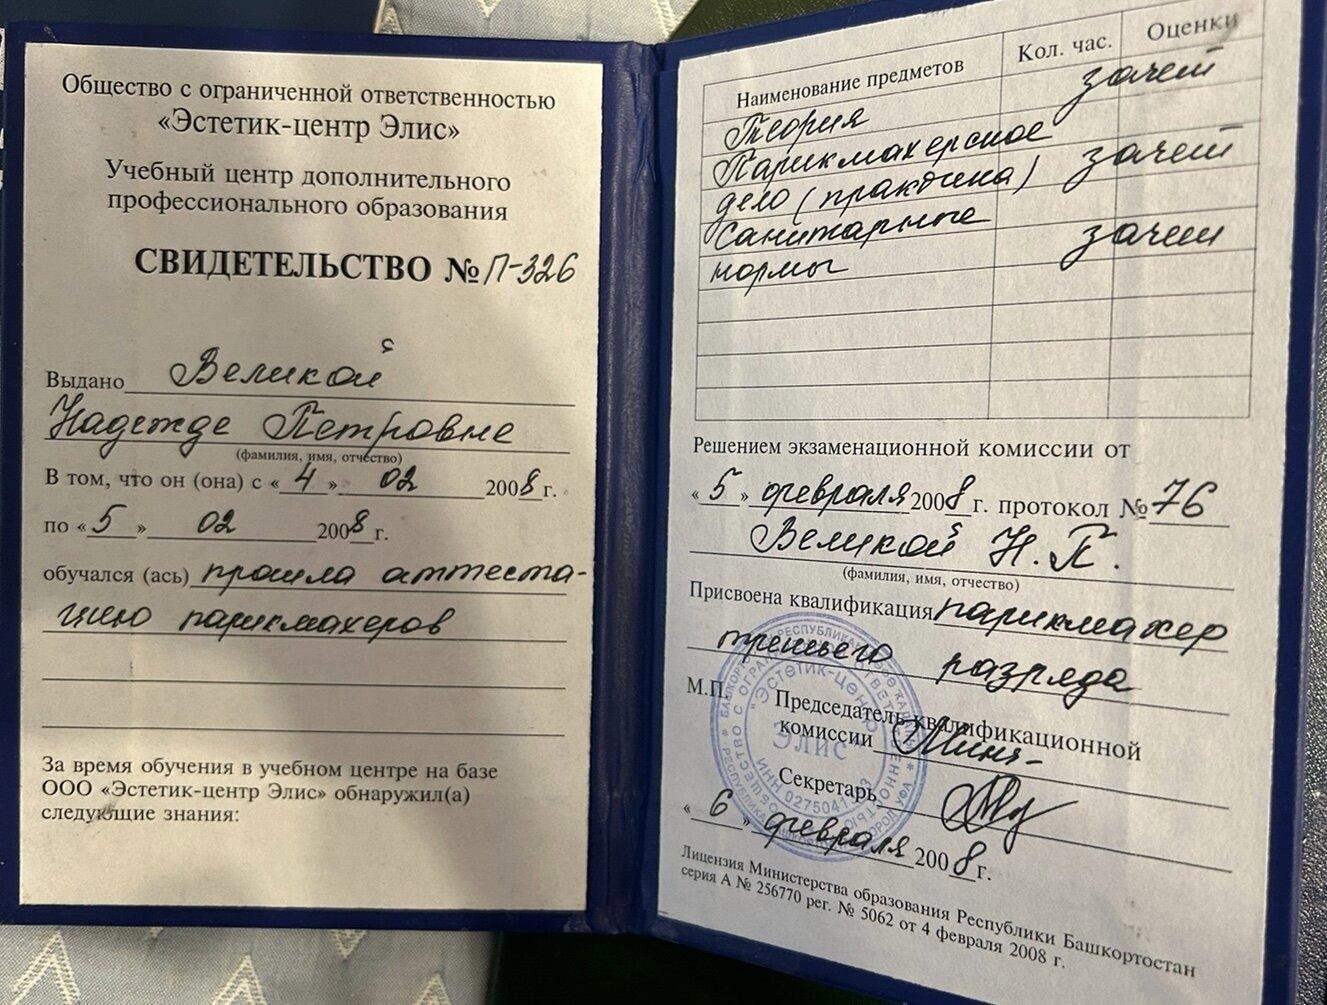 Общество с ограниченной ответственностью
«Эстетик-центр Элис»
Учебный центр дополнительного
профессионального образования
СВИДЕТЕЛЬСТВО № П-326
Выдано Великой
Надежде Петровне
(фамилия, имя, отчество)
В том, что он (она) с «4» 02 2008 г.
по «5» 02 2008 г.
обучался (ась) прошла аттеста-
цию парикмахеров
За время обучения в учебном центре на базе
ООО «Эстетик-центр Элис» обнаружил(а)
следующие знания:
Наименование предметов Кол. час. Оценки
Теория зачет
Парикмахерское
дело (практика) зачет
Санитарные
нормы зачет
Решением экзаменационной комиссии от
«5» февраля 2008 г. протокол № 76
Великой Н. П.
(фамилия, имя, отчество)
Присвоена квалификация парикмахер
третьего разряда
М.П.
Председатель квалификационной
комиссии
Секретарь
«6» февраля 2008 г.
Лицензия Министерства образования Республики Башкортостан
серия А № 256770 рег. № 5062 от 4 февраля 2008 г.
"Эстетик-центр
Элис